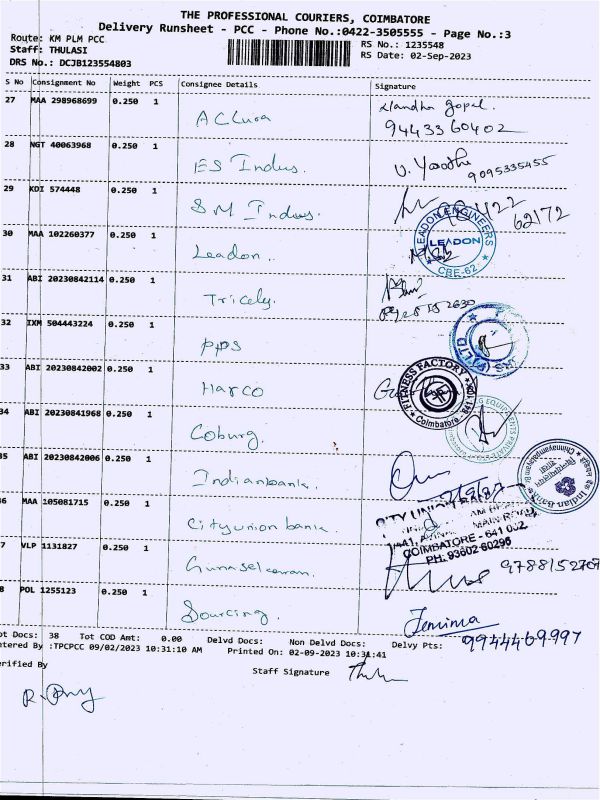 THE PROFESSIONAL COURIERS, COIMBATORE
Delivery Runsheet - PCC - Phone No.:0422-3505555 - Page No.:3
Route: KM PLM PCC
Staff: THULASI
DRS No.: DCJB123554803
RS No.: 1235548
RS Date: 02-Sep-2023
S No Consignment No Weight PCS Consignee Details Signature
27 MAA 298968699 0.250 1 gopal.
9443360402
28 NGT 40063968 0.250 1 ES Indus. 9095335455
29 KDI 574448 0.250 1 S M Indus. 62172
30 MAA 102260377 0.250 1 Leadon.
LEADON ENGINEERS
LEADON
CBE-62
31 ABI 20230842114 0.250 1 Tricely.
32 IXM 504443224 0.250 1 PPS
33 ABI 20230842002 0.250 1 Harco
FITNESS FACTORY
Coimbatore
34 ABI 20230841968 0.250 1 Coburg.
35 ABI 20230842006 0.250 1 Indianbank.
Indian Bank
36 MAA 105081715 0.250 1 Cityunion bank
CITY UNION
MAIN ROAD
COIMBATORE - 641 062.
PH: 93602 60296
37 VLP 1131827 0.250 1 Gunaselvaran.
38 POL 1255123 0.250 1 Sourcing. Jemima
9944469997
ot Docs: 38 Tot COD Amt: 0.00 Delvd Docs: Non Delvd Docs: Delvy Pts:
ntered By :TPCPCC 09/02/2023 10:31:10 AM Printed On: 02-09-2023 10:31:41
erified By Staff Signature